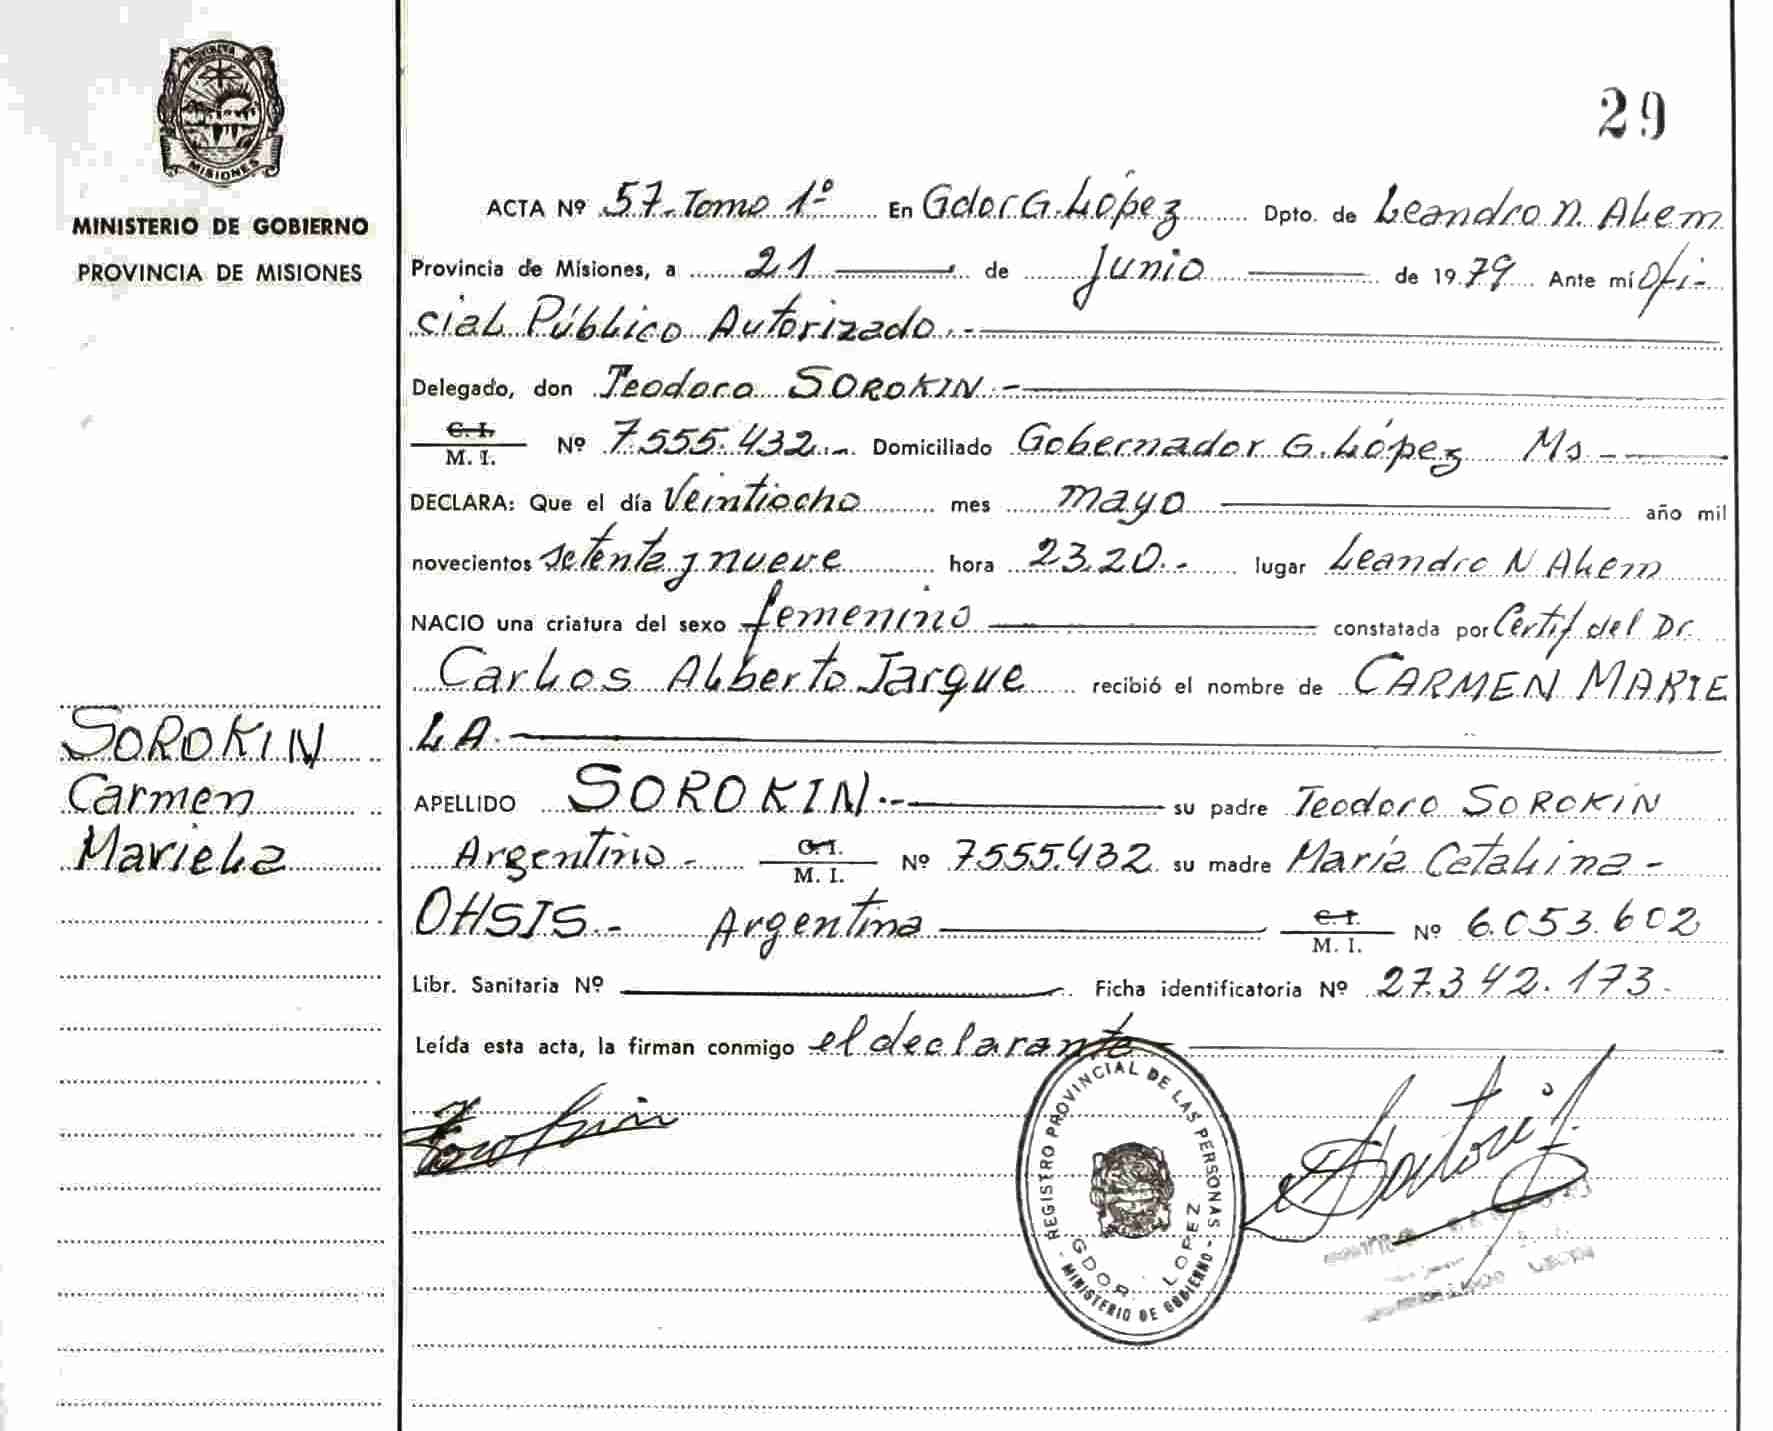 PROVINCIA DE
MISIONES
MINISTERIO DE GOBIERNO
PROVINCIA DE MISIONES
SOROKIN
Carmen
Mariela
29
ACTA Nº 57.-Tomo 1º En Gdor G. López Dpto. de Leandro N. Alem
Provincia de Misiones, a 21 de Junio de 1979 Ante mí Ofi-
cial Público Autorizado.-
Delegado, don Teodoro SOROKIN.-
C. I.
M. I. Nº 7.555.432.- Domiciliado Gobernador G. López Ms
DECLARA: Que el día Veintiocho mes mayo año mil
novecientos setenta y nueve hora 23.20.- lugar Leandro N Alem
NACIO una criatura del sexo femenino constatada por Certif del Dr.
Carlos Alberto Jarque recibió el nombre de CARMEN MARIE
LA.
APELLIDO SOROKIN.- su padre Teodoro SOROKIN
Argentino - C. I. M. I. Nº 7.555.432. su madre María Catalina -
OHSIS.- Argentina C. I. M. I. Nº 6.053.602
Libr. Sanitaria Nº Ficha identificatoria Nº 27.342.173.
Leída esta acta, la firman conmigo el declarante
Sorokin
REGISTRO PROVINCIAL DE LAS PERSONAS
GDOR. LOPEZ
- MINISTERIO DE GOBIERNO -